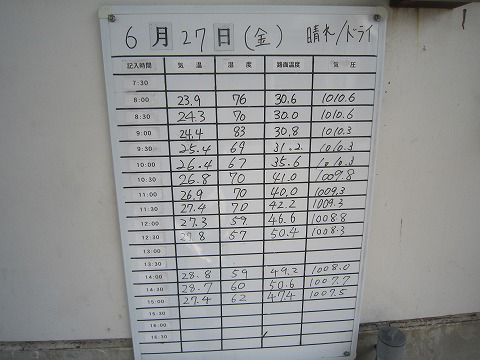 6月27日(金) 晴れ/ドライ
記入時間 気温 湿度 路面温度 気圧
7:30
8:00 23.9 76 30.6 1010.6
8:30 24.3 70 30.0 1010.6
9:00 24.4 83 30.8 1010.3
9:30 25.4 69 31.2 1010.3
10:00 26.4 67 35.6 1010.3
10:30 26.8 70 41.0 1009.8
11:00 26.9 70 40.0 1009.3
11:30 27.4 70 42.2 1009.3
12:00 27.3 59 46.6 1008.8
12:30 27.8 57 50.4 1008.3
13:00
13:30
14:00 28.8 59 49.2 1008.0
14:30 28.7 60 50.6 1007.7
15:00 27.4 62 47.4 1007.5
15:30
16:00
16:30